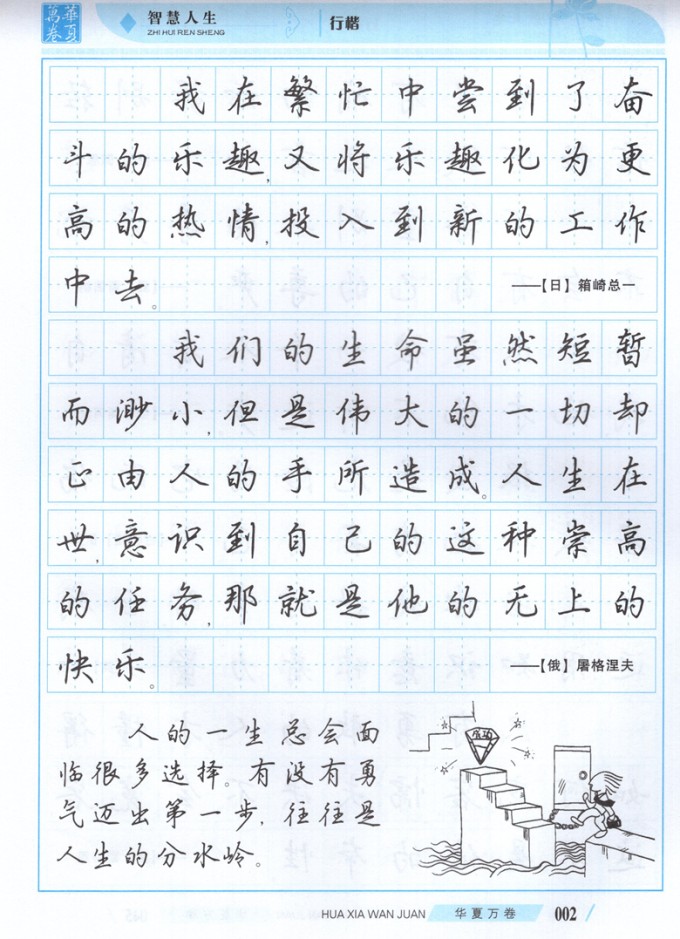 華夏萬卷
智慧人生
ZHI HUI REN SHENG
行楷
我在繁忙中尝到了奋
斗的乐趣,又将乐趣化为更
高的热情,投入到新的工作
中去。
——【日】箱崎总一
我们的生命虽然短暂
而渺小,但是伟大的一切却
正由人的手所造成。人生在
世,意识到自己的这种崇高
的任务,那就是他的无上的
快乐。
——【俄】屠格涅夫
人的一生总会面
临很多选择。有没有勇
气迈出第一步,往往是
人生的分水岭。
成功
HUA XIA WAN JUAN
华夏万卷
002